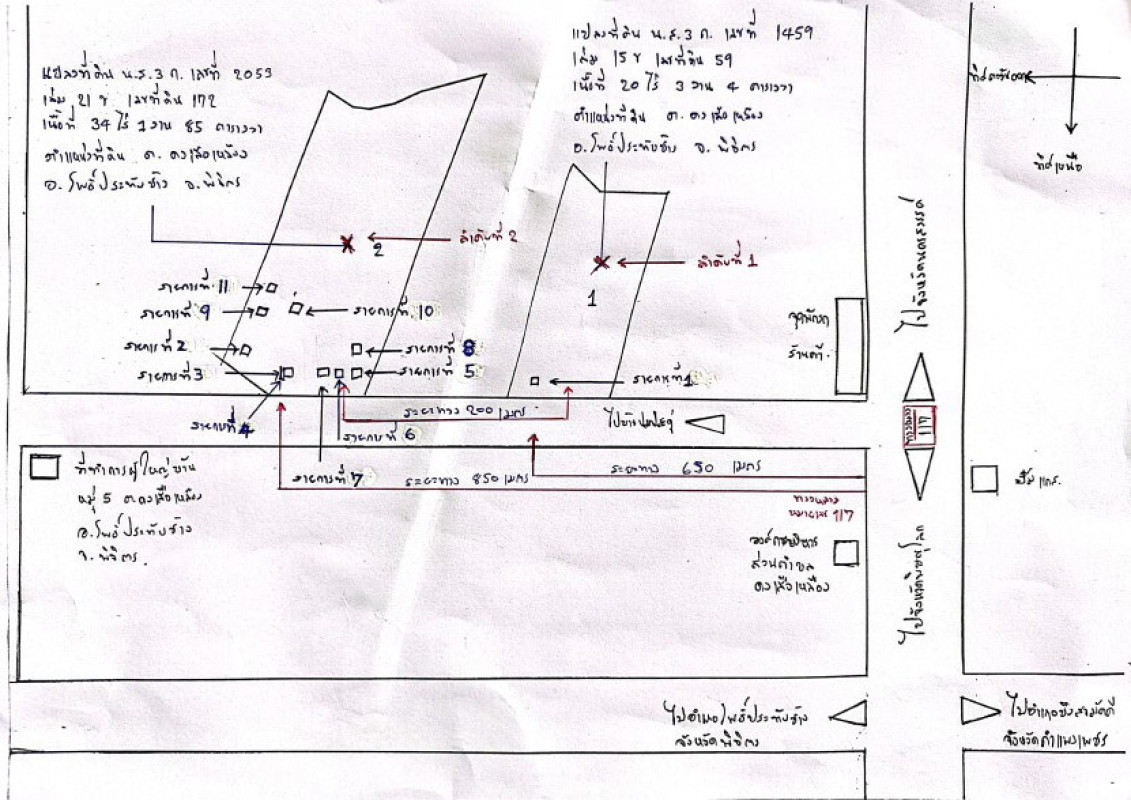 แปลงที่ดิน น.ส.3 ก. เลขที่ 2053
เล่ม 21 ข เลขที่ดิน 172
เนื้อที่ 34 ไร่ 1 งาน 85 ตารางวา
ตำแหน่งที่ดิน ต. ดงเสือเหลือง
อ. โพธิ์ประทับช้าง จ. พิจิตร
แปลงที่ดิน น.ส.3 ก. เลขที่ 1459
เล่ม 15 ข เลขที่ดิน 59
เนื้อที่ 20 ไร่ 3 งาน 4 ตารางวา
ตำแหน่งที่ดิน ต. ดงเสือเหลือง
อ. โพธิ์ประทับช้าง จ. พิจิตร
ทิศตะวันออก
ทิศเหนือ
ลำดับที่ 2
2
ลำดับที่ 1
1
รายการที่ 11
รายการที่ 9
รายการที่ 10
รายการที่ 2
รายการที่ 8
รายการที่ 3
รายการที่ 5
รายการที่ 1
รายการที่ 4
รายการที่ 6
รายการที่ 7
จุดพักรถ
ไปจังหวัดนครสวรรค์
ระยะทาง 200 เมตร
ระยะทาง 650 เมตร
ระยะทาง 850 เมตร
ทางหลวง
117
ทางหลวง
หมายเลข 117
ที่ทำการผู้ใหญ่บ้าน
หมู่ 5 ต. ดงเสือเหลือง
อ. โพธิ์ประทับช้าง
จ. พิจิตร.
องค์การบริหาร
ส่วนตำบล
ดงเสือเหลือง
ไปจังหวัดพิษณุโลก
ไปอำเภอโพธิ์ประทับช้าง
จังหวัดพิจิตร
ไปอำเภอบึงสามัคคี
จังหวัดกำแพงเพชร